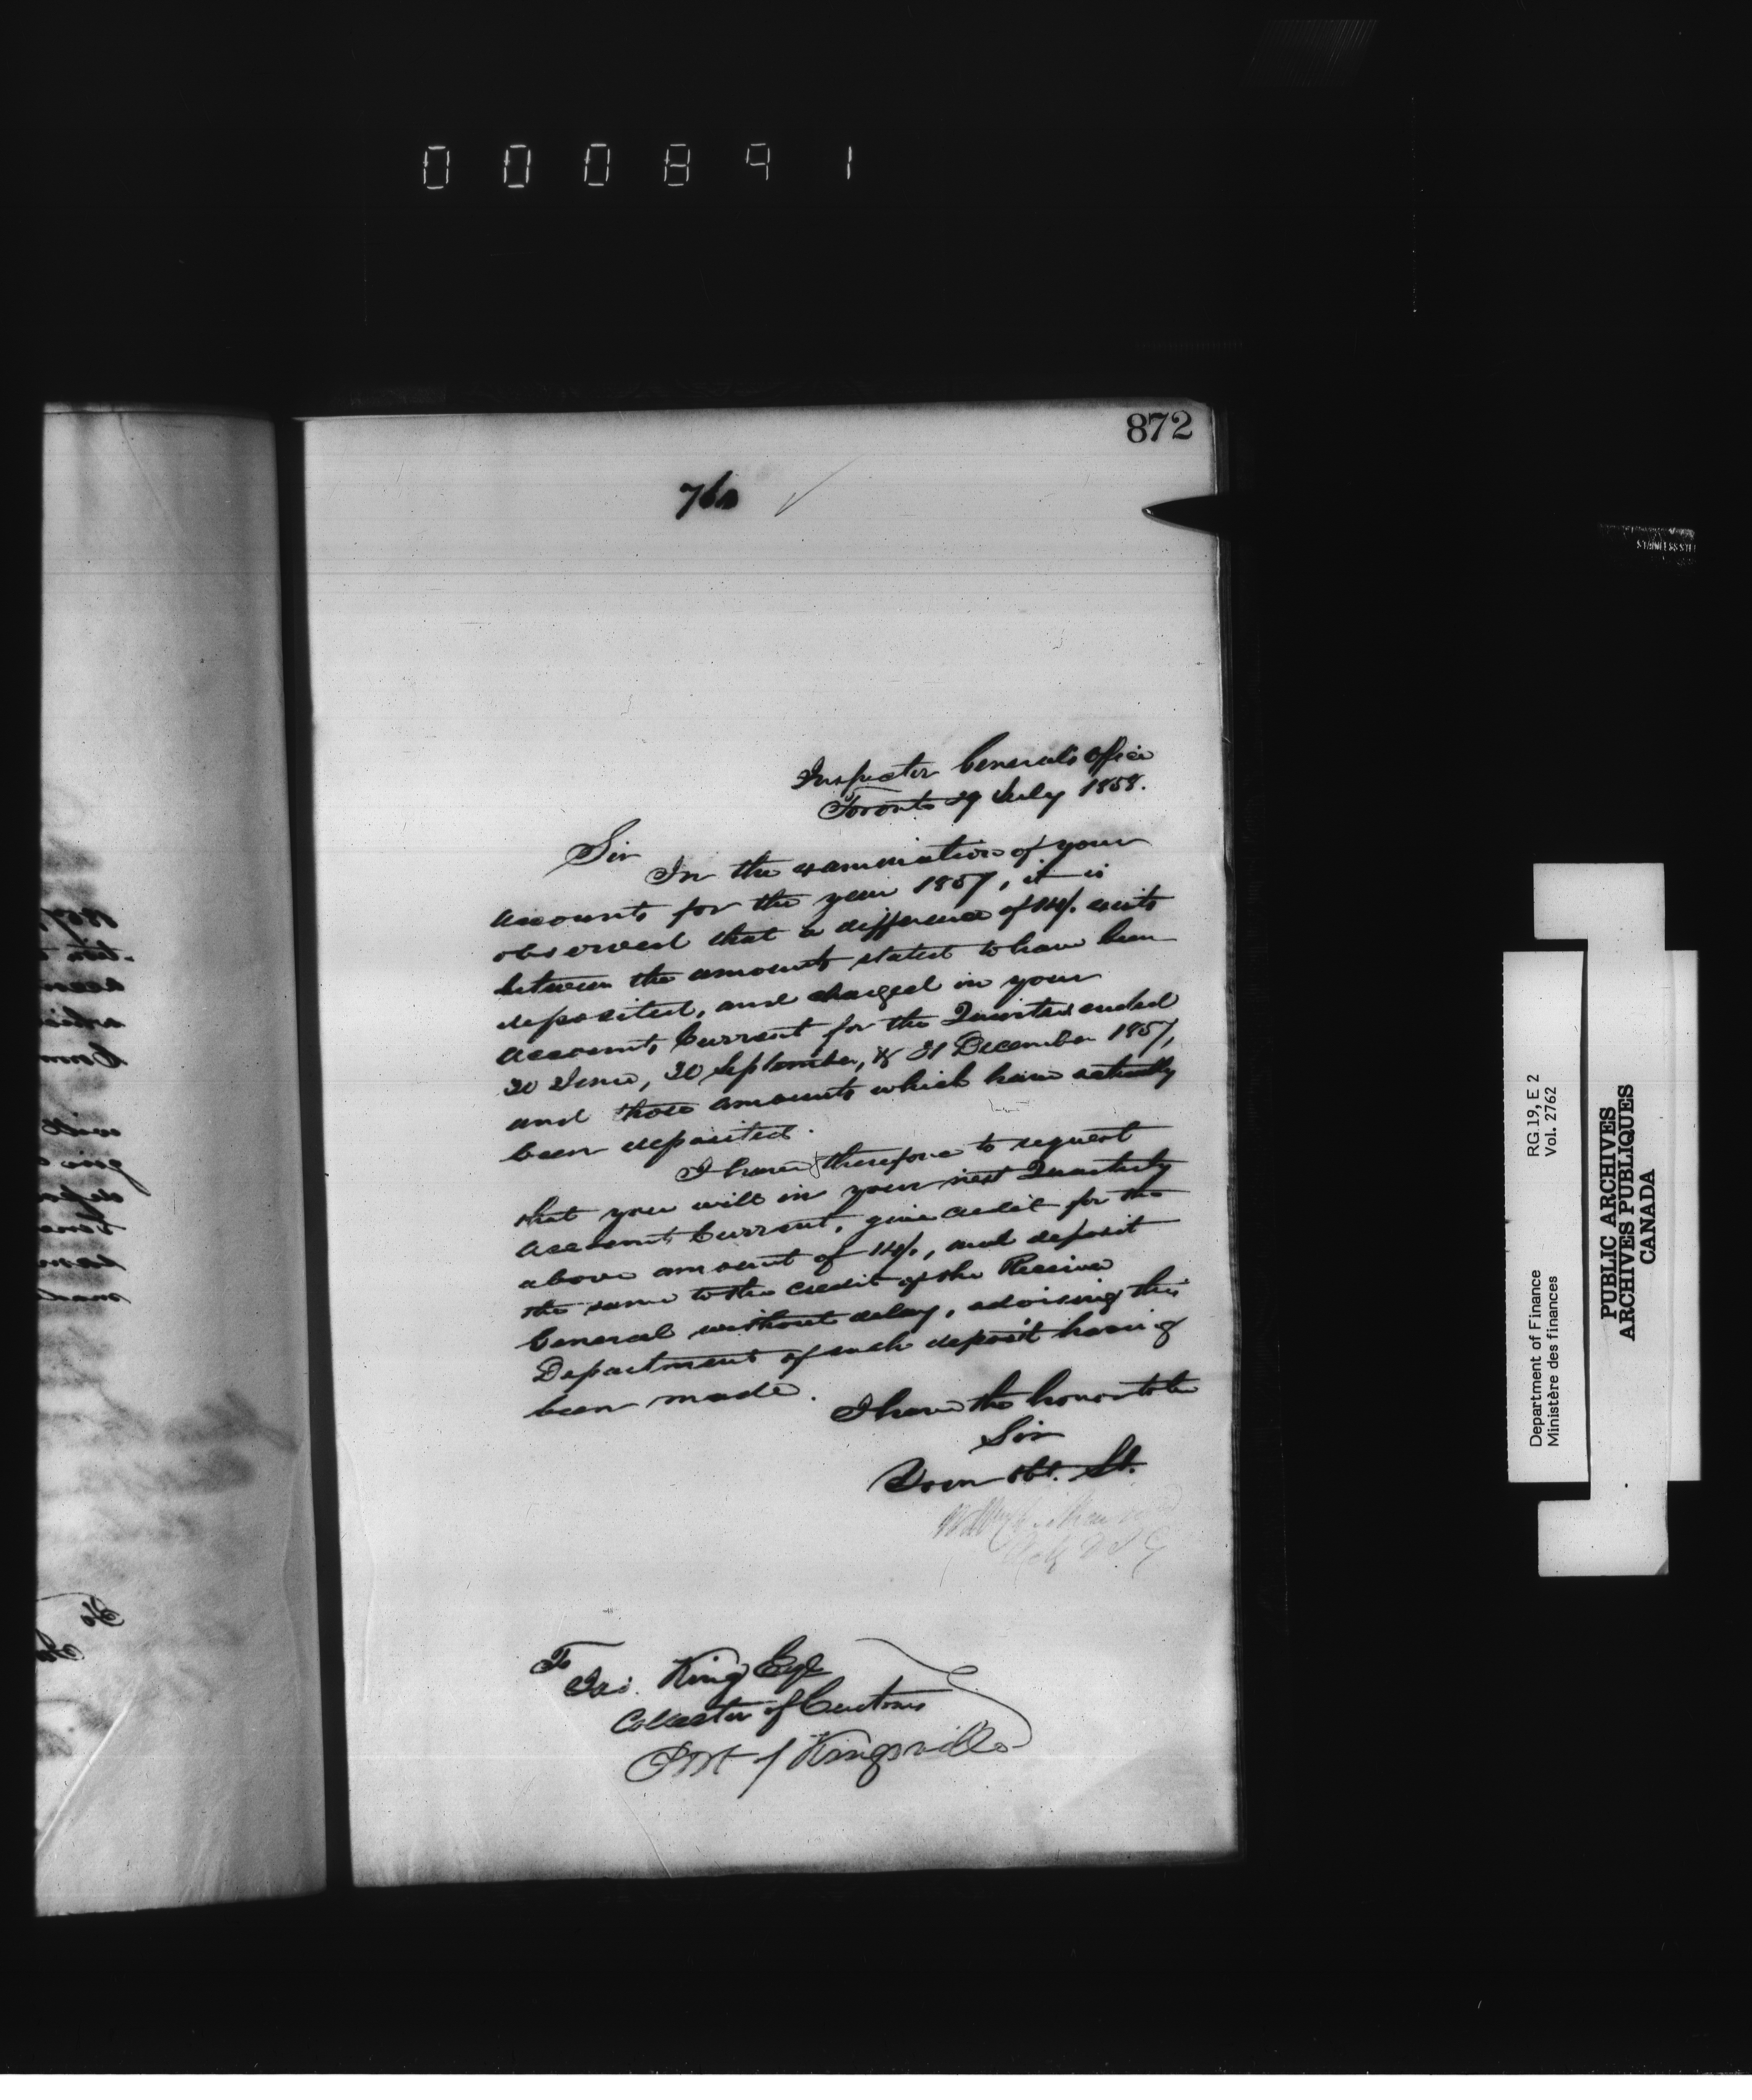 000891
872
Inspector General's Office
Toronto 29 July 1858.
Sir
In the examination of your
accounts for the year 1857, it is
observed that a difference of 14/. exists
between the amounts stated to have been
deposited, and charged in your
Accounts Current for the Quarters ended
30 June, 30 September, & 31 December 1857,
and those amounts which have actually
been deposited.
I have therefore to request
that you will in your next Quarterly
Account Current, give credit for the
above amount of 14/., and deposit
the same to the credit of the Receiver
General without delay, advising this
Department of such deposit having
been made.
I have the honor to be
Sir
Your obt. St.
To
Jas. King Esq
Collector of Customs
Port of Kingsville
STAINLESS STEEL
Department of Finance RG.19, E 2
Ministère des finances Vol. 2762
PUBLIC ARCHIVES
ARCHIVES PUBLIQUES
CANADA